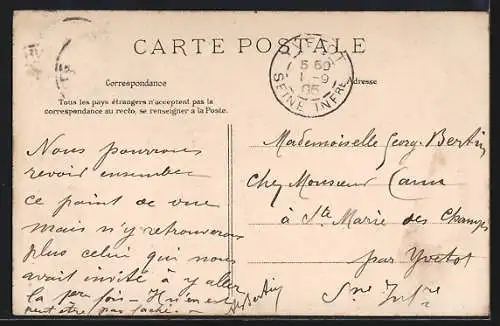 CARTE POSTALE
YVETOT
5 50
1 - 9
05
SEINE INFRE
Correspondance
Adresse
Tous les pays étrangers n'acceptent pas la
correspondance au recto, se renseigner à la Poste.
Nous pourrons
revoir ensemble
ce point de vue
mais n'y retrouverons
plus celui qui nous
avait invité à y aller
la 1ère fois - Il n'en est
peut être pas fâché -
Bertin
Mademoiselle Georg. Bertin
Chez Monsieur
à Ste Marie des Champs
par Yvetot
Sne Infre